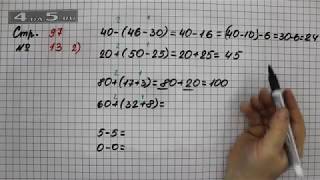 4 DA 5 .SU
Стр. 97
№ 13 2)
40-(46-30)=40-16=(40-10)-6=30-6=24
20+(50-25)=20+25=45
80+(17+3)=80+20=100
60+(32+8)=
5-5=
0-0=